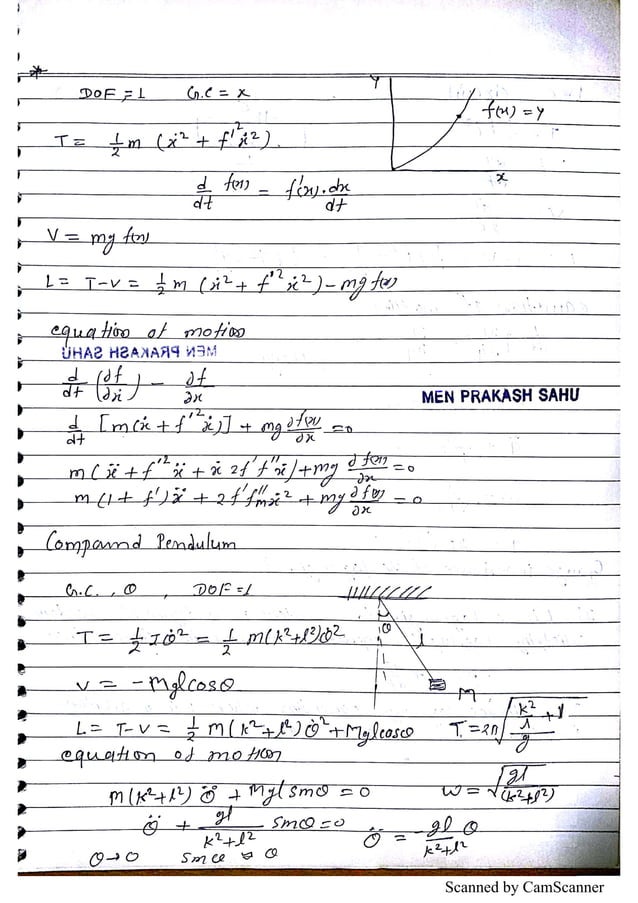 *
DOF = 1 G.C = x
Y
f(x) = y
x
T = 1/2 m (ẋ² + f'² ẋ²)
d/dt f(x) = f'(x) . dx/dt
V = mg f(x)
L = T-V = 1/2 m (ẋ² + f'² ẋ²) - mg f(x)
equation of motion
MEN PRAKASH SAHU
d/dt (∂f/∂ẋ) - ∂f/∂x
MEN PRAKASH SAHU
d/dt [m(ẋ + f'² ẋ)] + mg ∂f(x)/∂x = 0
m(ẍ + f'² ẍ + ẋ 2f' f'' ẋ) + mg ∂f(x)/∂x = 0
m(1 + f')ẍ + 2f' f'' m ẋ² + mg ∂f(x)/∂x = 0
Compound Pendulum
G.C. , θ , DOF = 1
θ
l
M
T = 1/2 I θ̇² = 1/2 M(k²+l²)θ̇²
V = -Mglcosθ
L = T-V = 1/2 M(k²+l²)θ̇² + Mglcosθ
T = 2π √((k²/l + l)/g)
equation of motion
M(k²+l²) θ̈ + Mgl sinθ = 0 ω = √(gl/(k²+l²))
θ̈ + gl/(k²+l²) sinθ = 0 θ̈ = -gl/(k²+l²) θ
θ→0 sinθ ≈ θ
Scanned by CamScanner